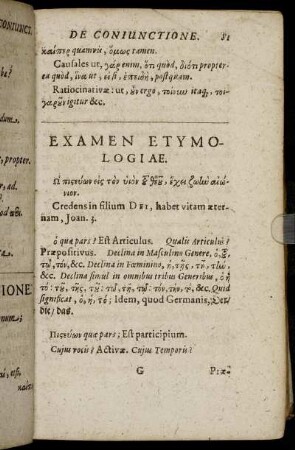 DE CONIUNCTIONE. 81
καίπερ quamvis, ὅμως tamen.
Causales ut, γὰρ enim, ὅτι quòd, διότι propter-
ea quòd, ἵνα ut, εἰ si, ἐπειδὴ, postquam.
Ratiocinativæ: ut, οὖν ergo, τοίνυν itaq;, τοι-
γαροῦν igitur &c.
EXAMEN ETYMO-
LOGIAE.
πιςεύων εἰς τὸν υἱὸν τοῦ θεοῦ, ἔχει ζωὴν αἰώ-
νιον.
Credens in filium DEI, habet vitam æter-
nam, Joan. 3.
ὁ quæ pars? Est Articulus. Qualis Articulus?
Præpositivus. Declina in Masculino Genere, ὁ, τοῦ,
τῷ, τόν, &c. Declina in Fœminino, ἡ, τῆς, τῇ, τὴν,
&c. Declina simul in omnibus tribus Generibus, ὁ ἡ
τὸ: τοῦ, τῆς, τοῦ: τῷ, τῇ, τῷ: τὸν, τὴν, τὸ, &c. Quid
significat, ὁ, ἡ, τὸ; Idem, quod Germanis, Der/
die/ das.
Πιςεύων quæ pars; Est participium.
Cujus vocis? Activæ. Cujus Temporis?
G Præ-